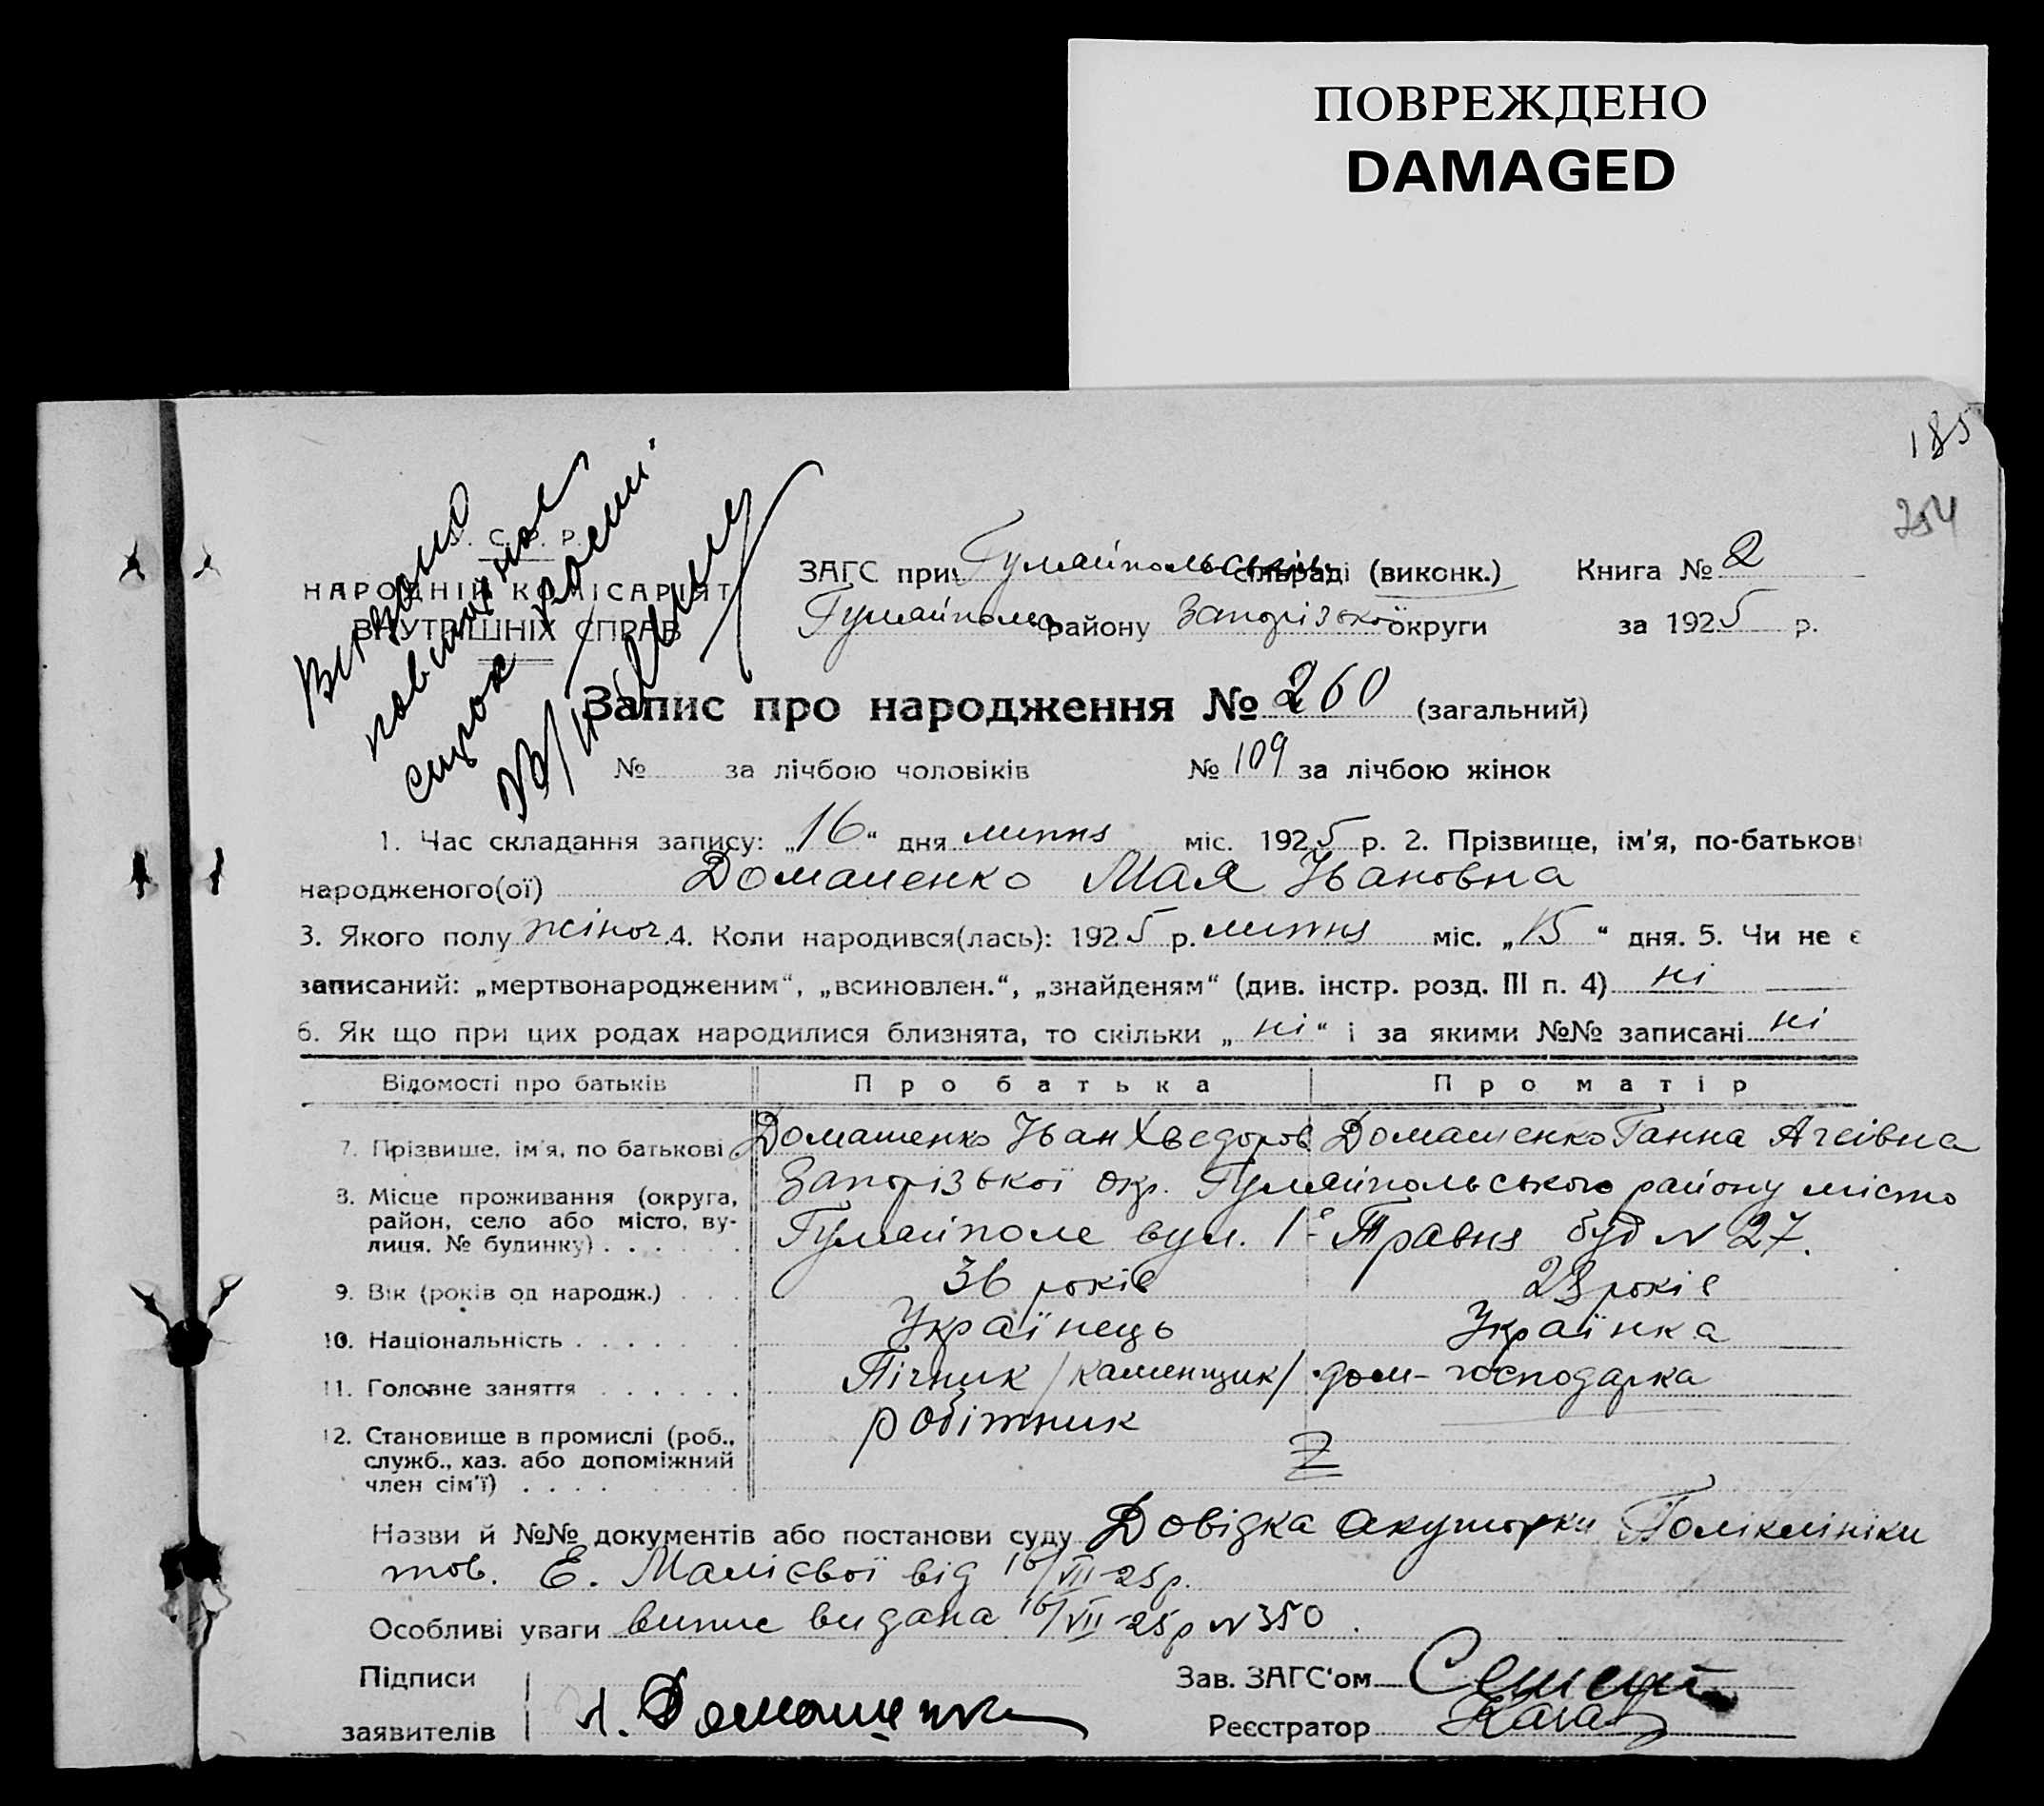 ПОВРЕЖДЕНО
DAMAGED
185
254
У. С. Р. Р.
НАРОДНІЙ КОМІСАРІЯТ
ВНУТРІШНІХ СПРАВ
Видано
повторное
ЗАГС при Гуляйпольській сільраді (виконк.)
Книга № 2
Гуляйпільс району Запорізької округи
за 1925 р.
Запис про народження № 260 (загальний)
№ за лічбою чоловіків № 109 за лічбою жінок
1. Час складання запису: „16“ дня липня міс. 1925 р. 2. Прізвище, ім'я, по-батькові
народженого(ої) Домашенко Мая Івановна
3. Якого полу жіноч. 4. Коли народився(лась): 1925 р. липня міс. „15“ дня. 5. Чи не є
записаний: „мертвонародженим“, „всиновлен.“, „знайденям“ (див. інстр. розд. III п. 4) ні
6. Як що при цих родах народилися близнята, то скільки „ні“ і за якими №№ записані ні
Відомості про батьків Про батька Про матір
7. Прізвище, ім'я, по батькові Домашенко Іван Хведоров Домашенко Ганна Агеівна
8. Місце проживання (округа, район, село або місто, вулиця, № будинку) . . . . . . Запорізької окр. Гуляйпольського району місто
Гуляйполе вул. 1-е Травня буд № 27.
9. Вік (років од народж.) . . . 36 років 28 років
10. Національність . . . . . . Українець Українка
11. Головне заняття . . . . . . Пічник /каменщик/ дом-господарка
12. Становище в промислі (роб., служб., хаз. або допоміжний член сім'ї) . . . . робітник
Назви й №№ документів або постанови суду Довідка акушорки Поліклініки
тов. Е. Малієвої від 16/VII-25р.
Особливі уваги випис видана 16/VII-25р № 350.
Підписи
заявителів
А. Домашенко
Зав. ЗАГС'ом
Реєстратор